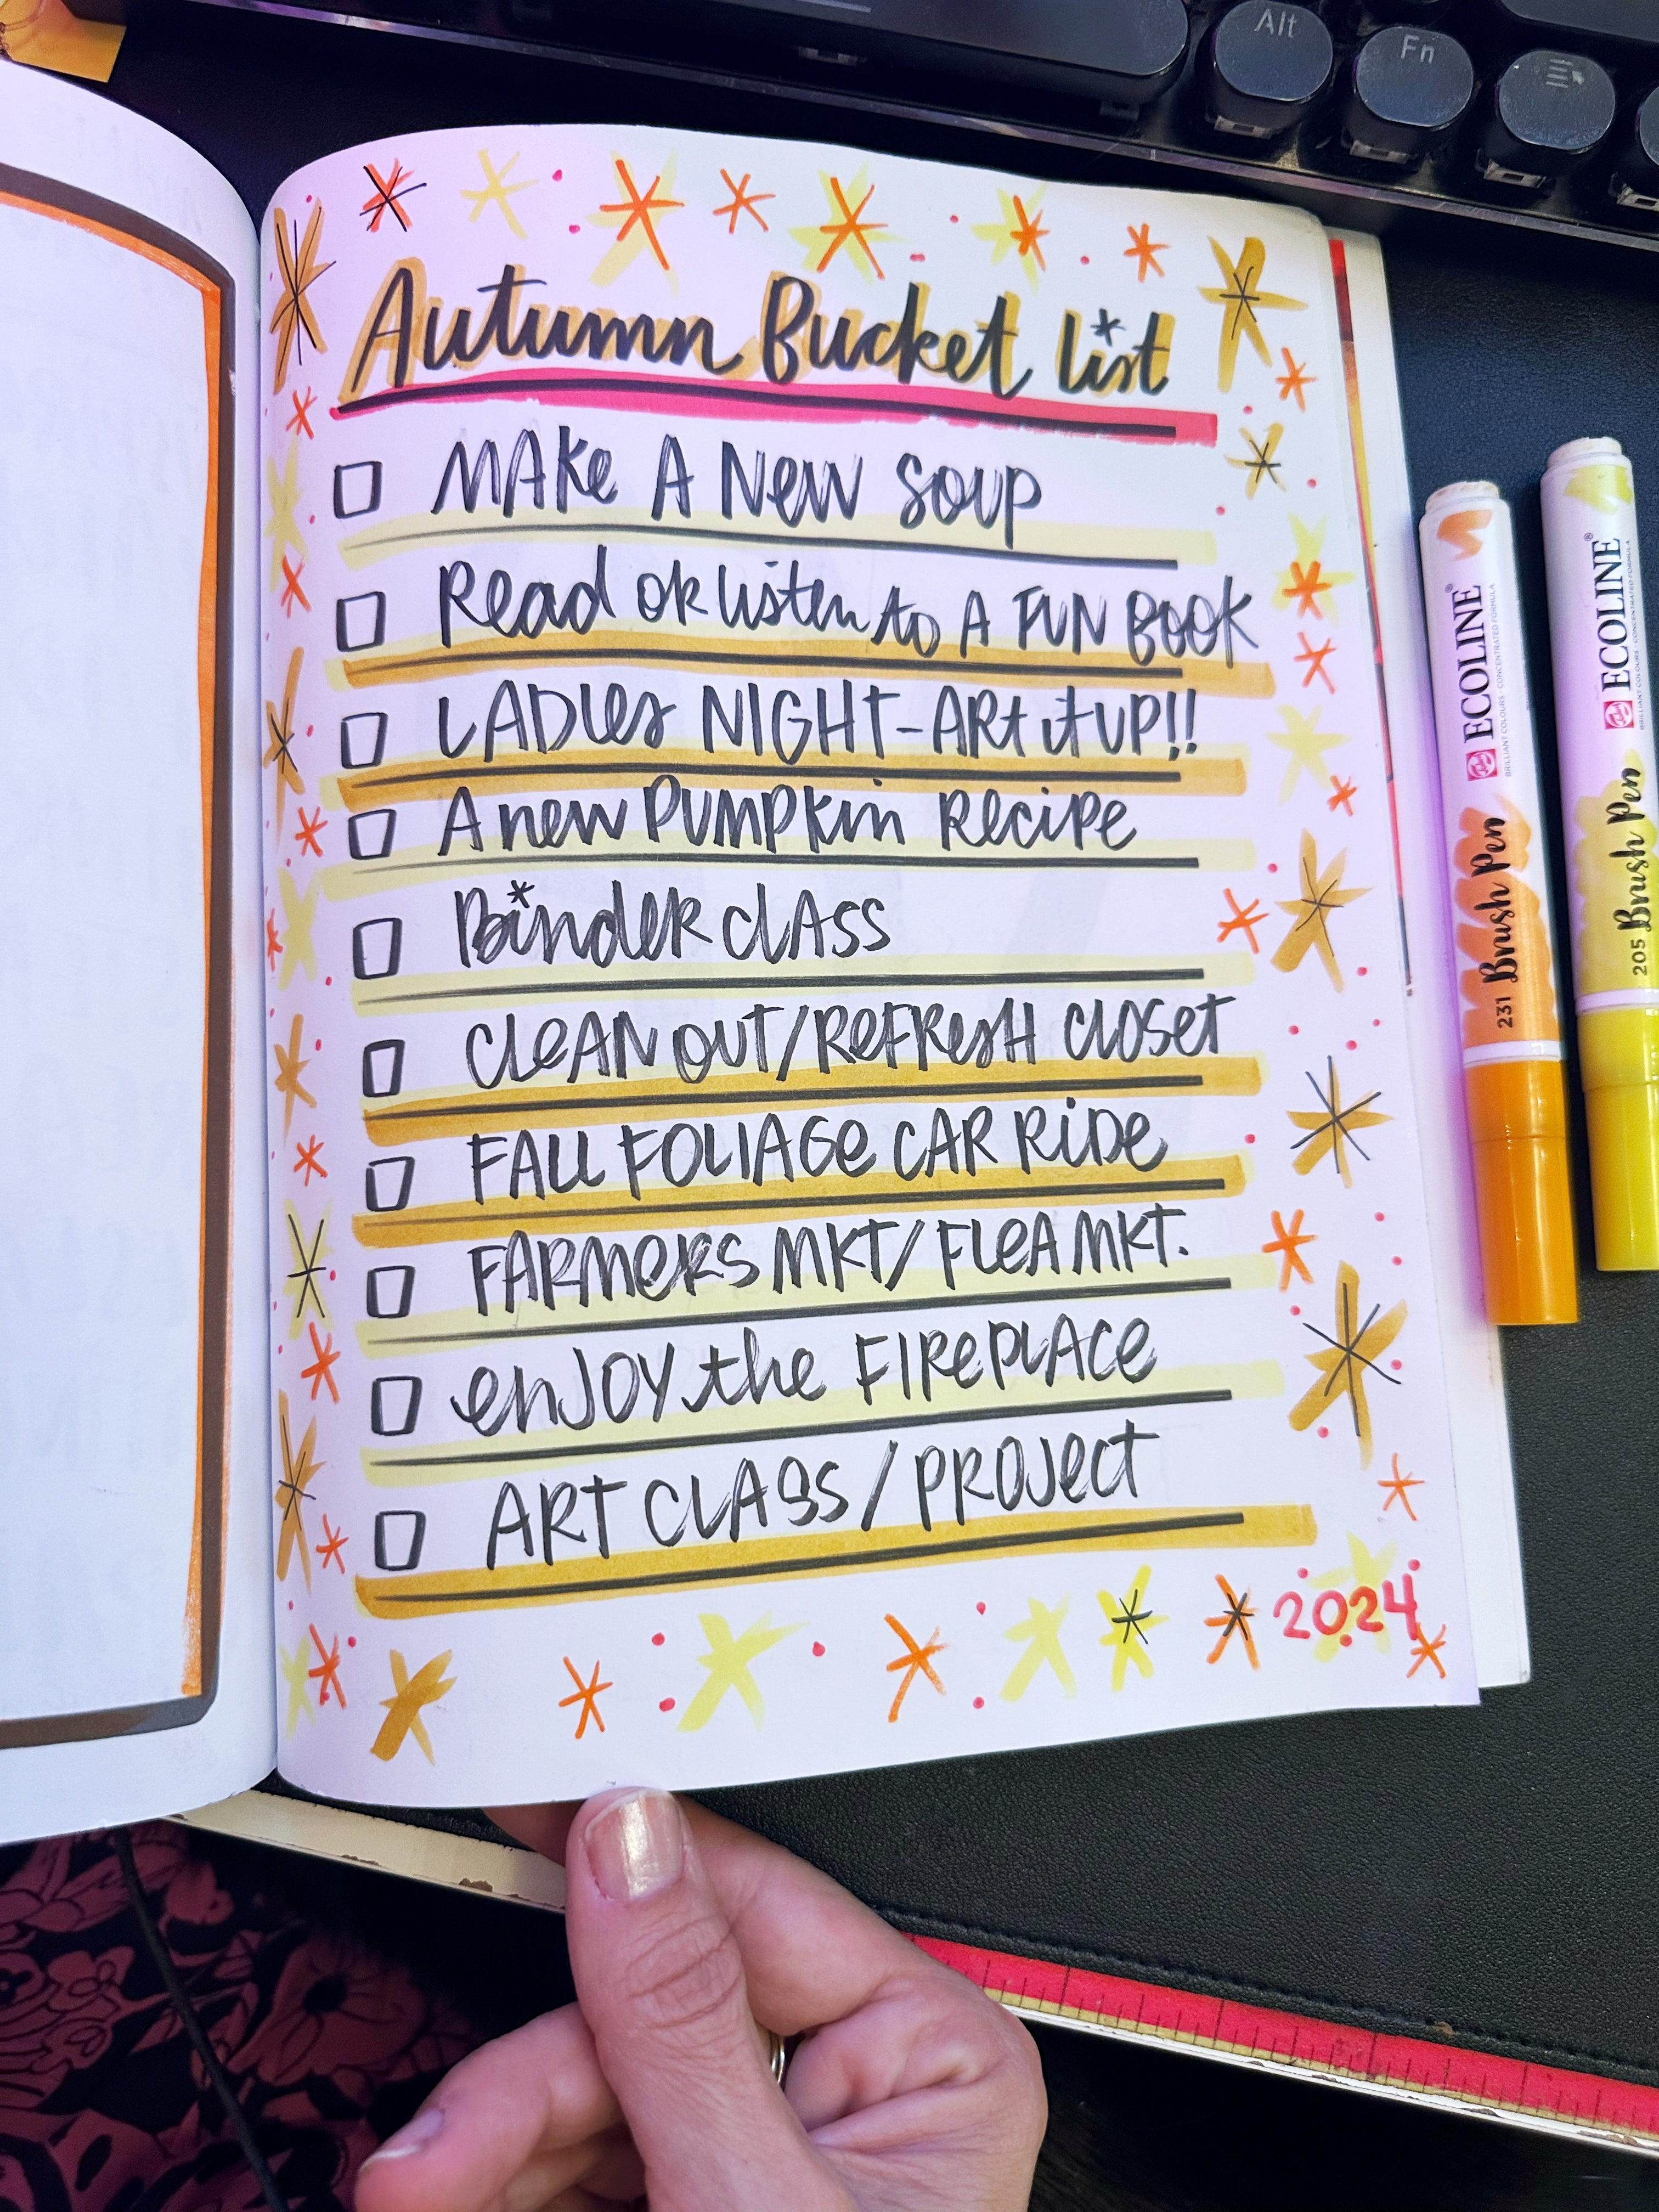 Alt
Fn
Autumn Bucket list
MAKe A New Soup
Read oR listen to A FUN BOOK
LADIes NIGHT-ARt it UP!!
A new PUMPKin Recipe
Binder class
CleAN OUT/ReFResH Closet
FALL FOLIAGe CAR RiDe
FARMeRS MKT/FLeA MKT.
enJOY the FIRePLACe
ART CLASS/PROJect
2024
ECOLINE®
BRILLIANT COLOURS - CONCENTRATED FORMULA
231 Brush Pen
ECOLINE®
BRILLIANT COLOURS - CONCENTRATED FORMULA
205 Brush Pen